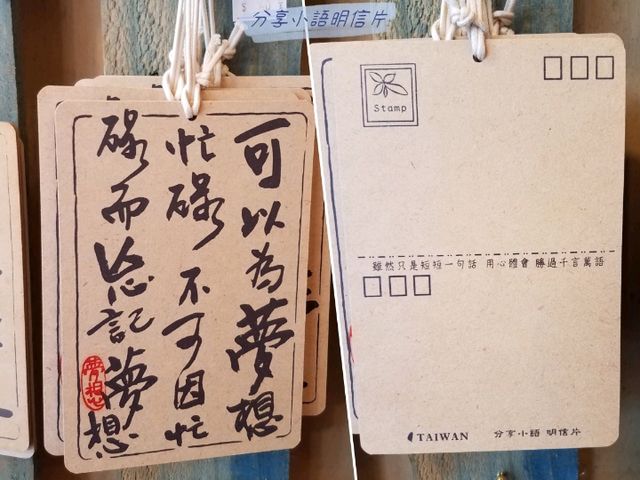 分享小語明信片
可以為夢想
忙碌 不可因忙
碌而忘記夢想
夢想
Stamp
雖然只是短短一句話 用心體會 勝過千言萬語
TAIWAN 分享小語 明信片